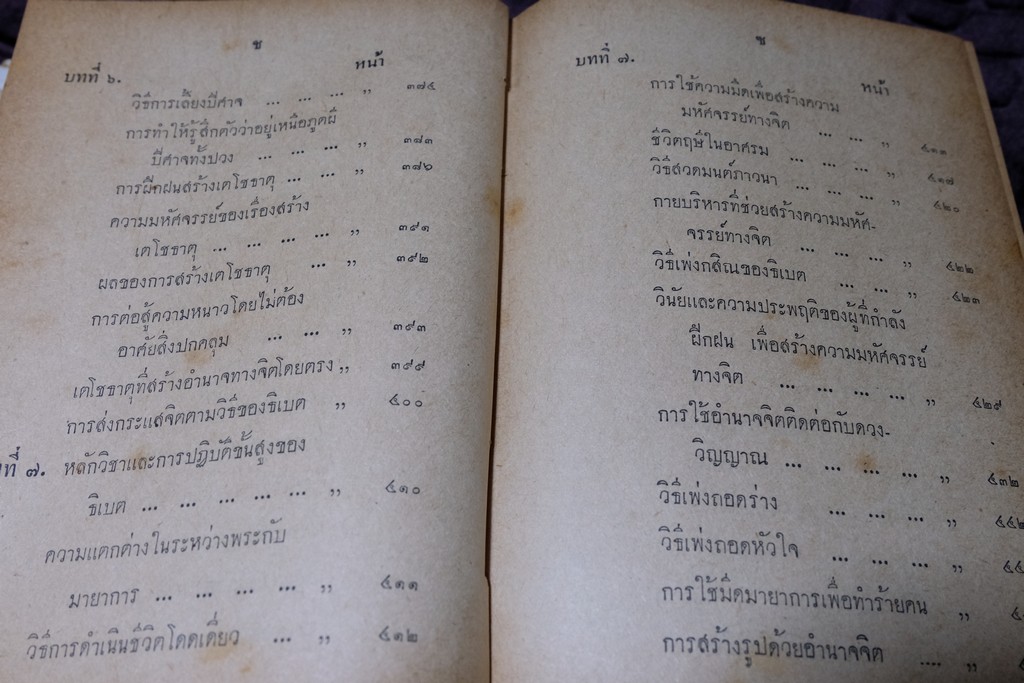 ช
บทที่ ๖. หน้า
วิธีการเลี้ยงปีศาจ ... ... ... ,, ๓๗๕
การทำให้รู้สึกตัวว่าอยู่เหนือภูตผี
ปีศาจทั้งปวง ... ... ... ,, ๓๘๓
การฝึกฝนสร้างเตโชธาตุ ... ... ,, ๓๘๖
ความมหัศจรรย์ของเรื่องสร้าง
เตโชธาตุ ... ... ... ... ,, ๓๙๑
ผลของการสร้างเตโชธาตุ ... ,, ๓๙๒
การต่อสู้ความหนาวโดยไม่ต้อง
อาศัยสิ่งปกคลุม ... ... ,, ๓๙๓
เตโชธาตุที่สร้างอำนาจทางจิตโดยตรง ,, ๓๙๙
การส่งกระแสจิตตามวิธีของธิเบต ,, ๔๐๐
ที่ ๗. หลักวิชาและการปฏิบัติขั้นสูงของ
ธิเบต ... ... ... ... ... ,, ๔๑๐
ความแตกต่างในระหว่างพระกับ
มายาการ ... ... ... ... ,, ๔๑๑
วิธีการดำเนินชีวิตโดดเดี่ยว ... ,, ๔๑๒
ซ
บทที่ ๗. หน้า
การใช้ความมืดเพื่อสร้างความ
มหัศจรรย์ทางจิต ... ... ,, ๔๑๑
ชีวิตฤษีในอาศรม ... ... ... ,, ๔๑๗
วิธีสวดมนต์ภาวนา ... ... ... ,, ๔๒๐
กายบริหารที่ช่วยสร้างความมหัศ-
จรรย์ทางจิต ... ... ... ,, ๔๒๒
วิธีเพ่งกสิณของธิเบต ... ... ,, ๔๒๓
วินัยและความประพฤติของผู้ที่กำลัง
ฝึกฝน เพื่อสร้างความมหัศจรรย์
ทางจิต ... ... ... ... ,, ๔๒๙
การใช้อำนาจจิตติดต่อกับดวง-
วิญญาณ ... ... ... ... ,, ๔๓๒
วิธีเพ่งถอดร่าง ... ... ... ,, ๔๔๒
วิธีเพ่งถอดหัวใจ ... ... ... ,, ๔๔
การใช้มีดมายาการเพื่อทำร้ายคน ,, ๔
การสร้างรูปด้วยอำนาจจิต .... ,,